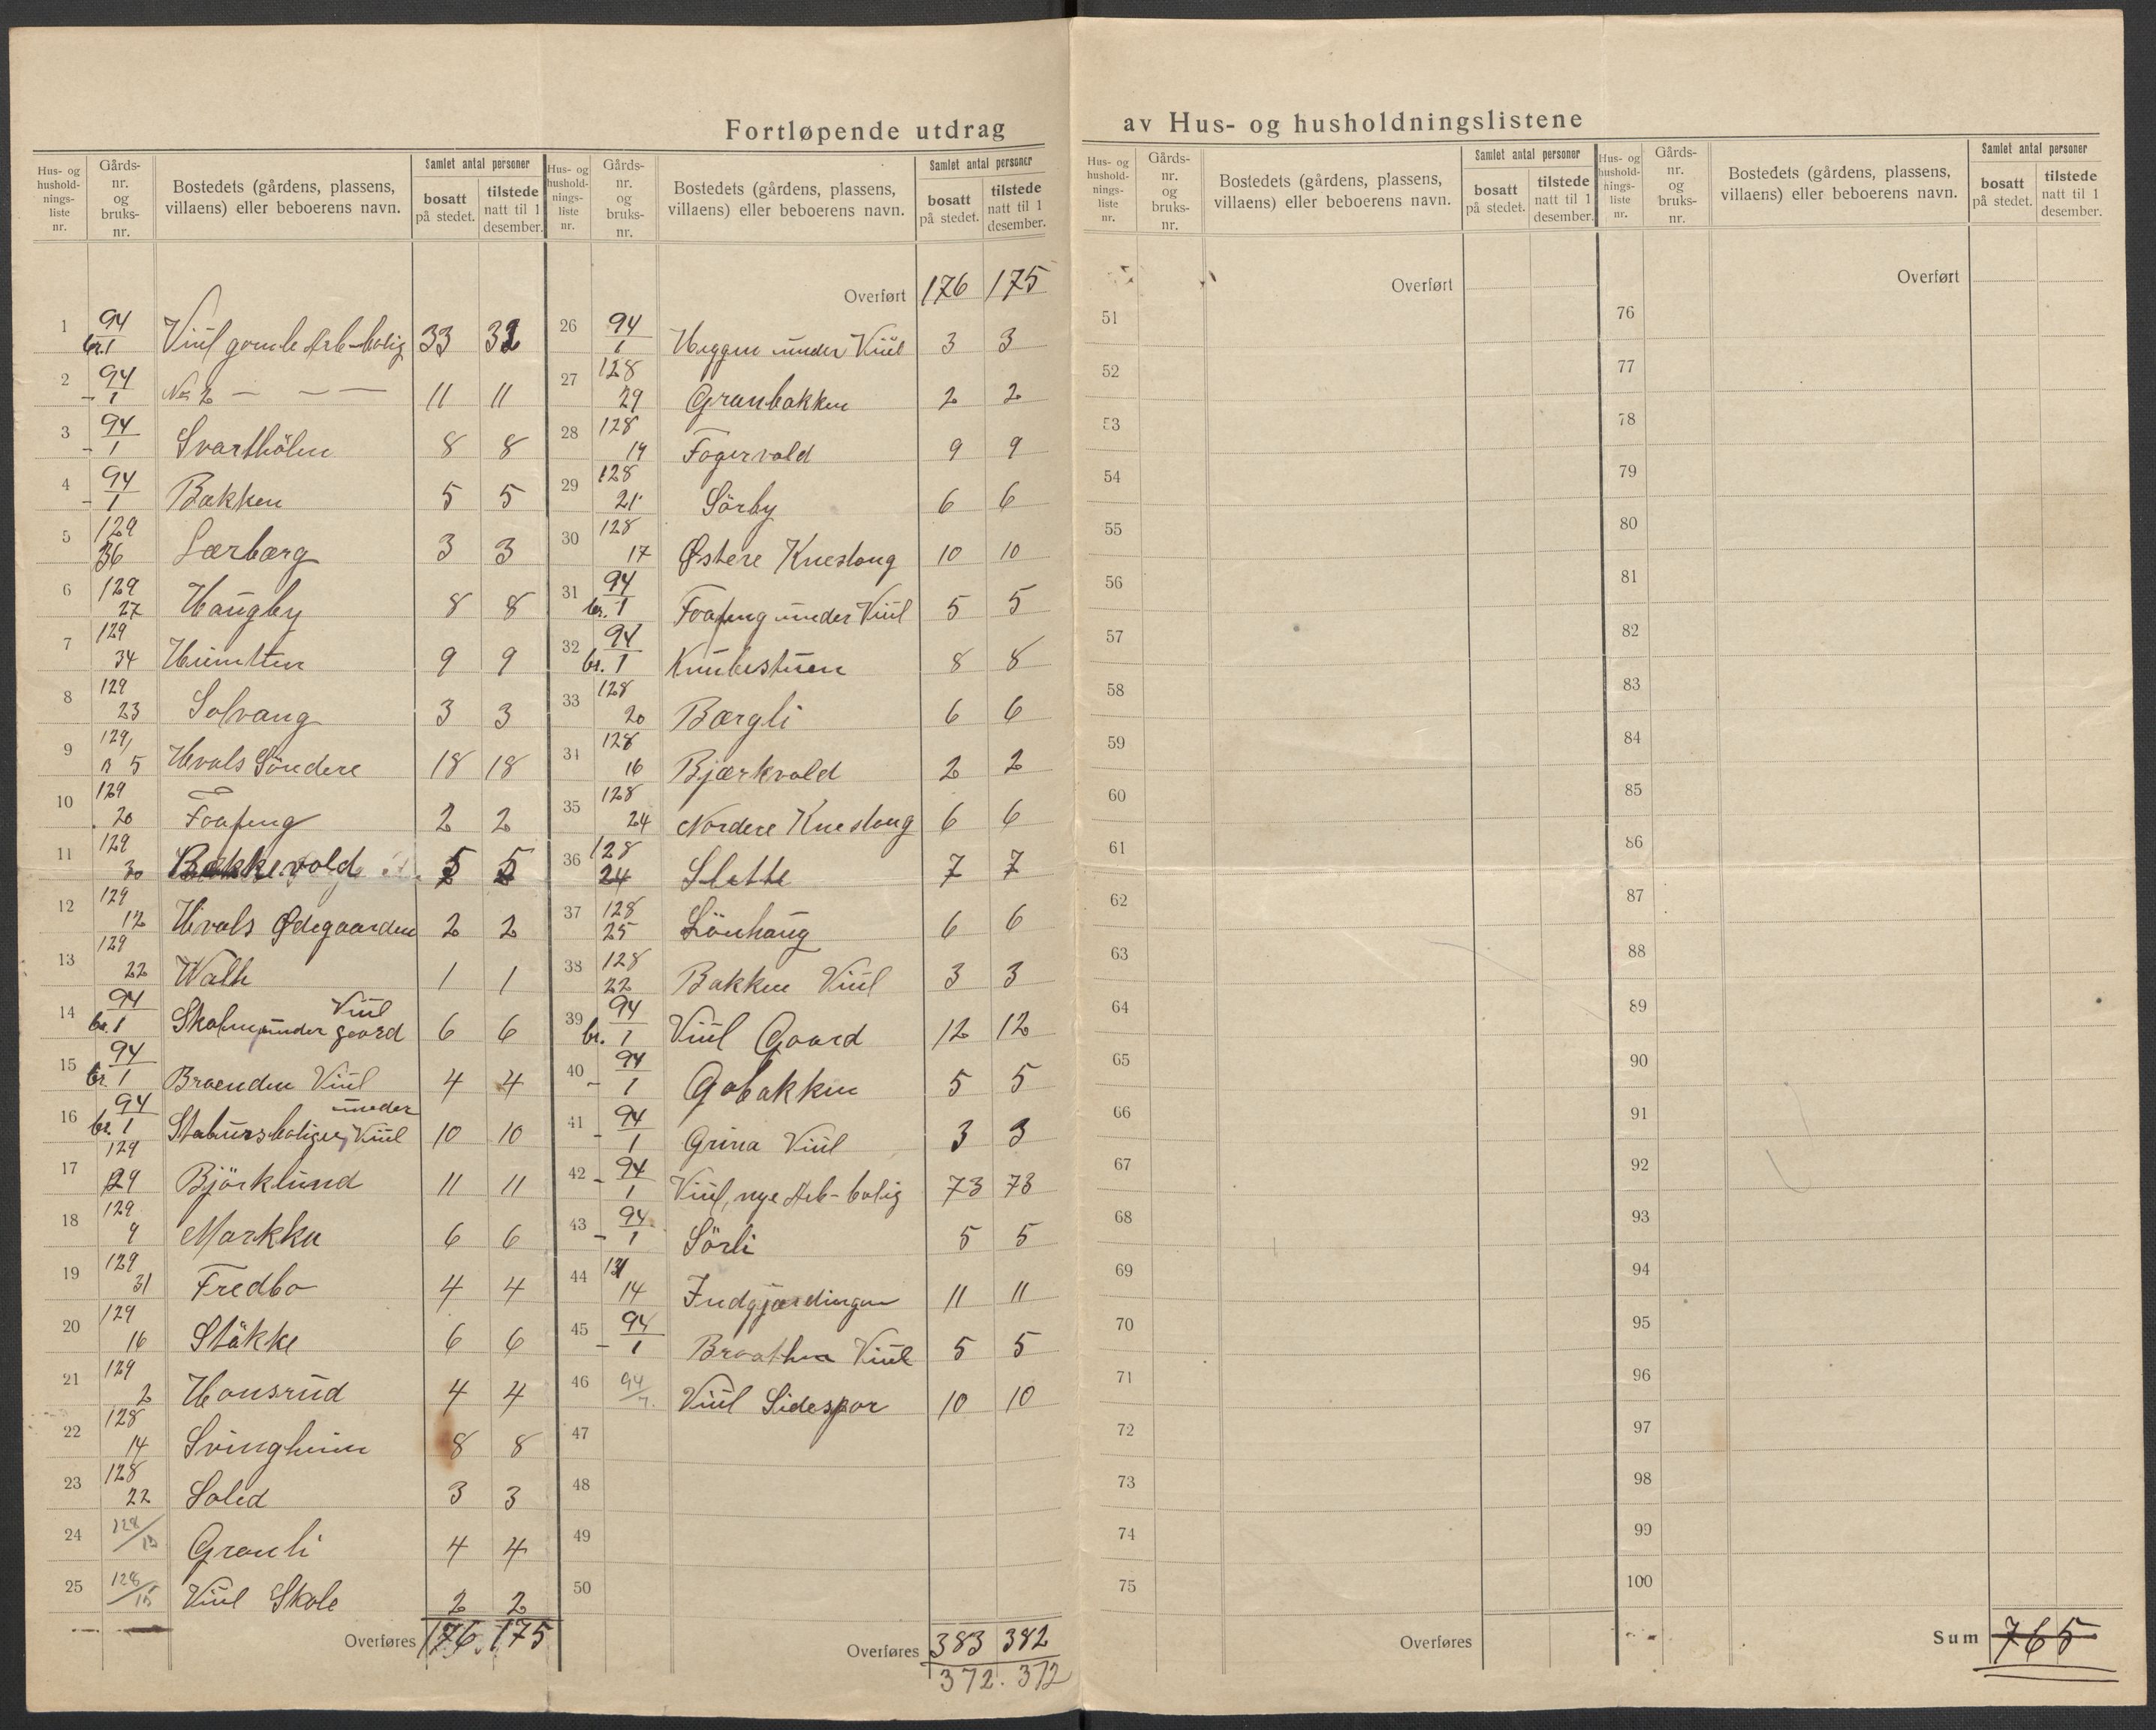 Fortløpende utdrag av Hus- og husholdningslistene
Hus- og hushold-nings-liste nr. Gårds-nr. og bruks-nr. Bostedets (gårdens, plassens, villaens) eller beboerens navn. Samlet antal personer bosatt på stedet. tilstede natt til 1 desember.
1 94 br. 1 Viul gamle Arb-bolig 33 32
2 94 - 1 No 2 — — — 11 11
3 94 - 1 Svarthölen 8 8
4 94 - 1 Bakken 5 5
5 129 36 Lærbærg 3 3
6 129 27 Haugby 8 8
7 129 34 9 9
8 129 23 Solvang 3 3
9 129, 5 Hvals Söndere 18 18
10 129 20 Foafeng 2 2
11 129 30 Bækkevold 5 5
12 129 12 Hvals Ødegaarden 2 2
13 129 22 Wath 1 1
14 94 br. 1 under Viul gaard 6 6
15 94 br. 1 Braenden Viul 4 4
16 94 br. 1 Stabursboligen under Viul 10 10
17 129 29 Björklund 11 11
18 129 9 Markka 6 6
19 129 31 Fredbo 4 4
20 129 16 Stäkke 6 6
21 129 2 Honsrud 4 4
22 128 14 Svingheim 8 8
23 128 22 Solid 3 3
24 128/13 Granli 4 4
25 128/15 Viul Skole 2 2
Overføres 176 175
Hus- og hushold-nings-liste nr. Gårds-nr. og bruks-nr. Bostedets (gårdens, plassens, villaens) eller beboerens navn. Samlet antal personer bosatt på stedet. tilstede natt til 1 desember.
Overført 176 175
26 94 1 Heggen under Viul 3 3
27 128 29 Granbakken 2 2
28 128 19 Fagervold 9 9
29 128 21 Sörby 6 6
30 128 17 Østere Kneslang 10 10
31 94 br. 1 Foafeng under Viul 5 5
32 94 br. 1 Knubestuen 8 8
33 128 20 Bærgli 6 6
34 128 16 Bjærkvold 2 2
35 128 24 Nordere Kneslang 6 6
36 128 24 Slette 7 7
37 128 25 Lönhaug 6 6
38 128 22 Bakken Viul 3 3
39 94 br. 1 Viul Gaard 12 12
40 94 - 1 Gabakken 5 5
41 94 - 1 Grina Viul 3 3
42 - 94 1 Viul, nye Arb-bolig 73 73
43 94 - 1 Sörli 5 5
44 131 14 Indgjærdingen 11 11
45 94 - 1 Braathen Viul 5 5
46 94/7. Viul Sidespor 10 10
47
48
49
50
Overføres 383 382
372. 372
Hus- og hushold-nings-liste nr. Gårds-nr. og bruks-nr. Bostedets (gårdens, plassens, villaens) eller beboerens navn. Samlet antal personer bosatt på stedet. tilstede natt til 1 desember.
Overført
51
52
53
54
55
56
57
58
59
60
61
62
63
64
65
66
67
68
69
70
71
72
73
74
75
Overføres
Hus- og hushold-nings-liste nr. Gårds-nr. og bruks-nr. Bostedets (gårdens, plassens, villaens) eller beboerens navn. Samlet antal personer bosatt på stedet. tilstede natt til 1 desember.
Overført
76
77
78
79
80
81
82
83
84
85
86
87
88
89
90
91
92
93
94
95
96
97
98
99
100
Sum 765